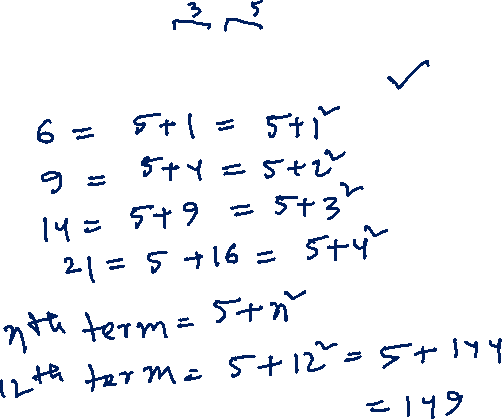 3 5
6 = 5+1 = 5+1²
9 = 5+4 = 5+2²
14 = 5+9 = 5+3²
21 = 5+16 = 5+4²
nth term = 5+n²
12th term = 5+12² = 5+144
= 149